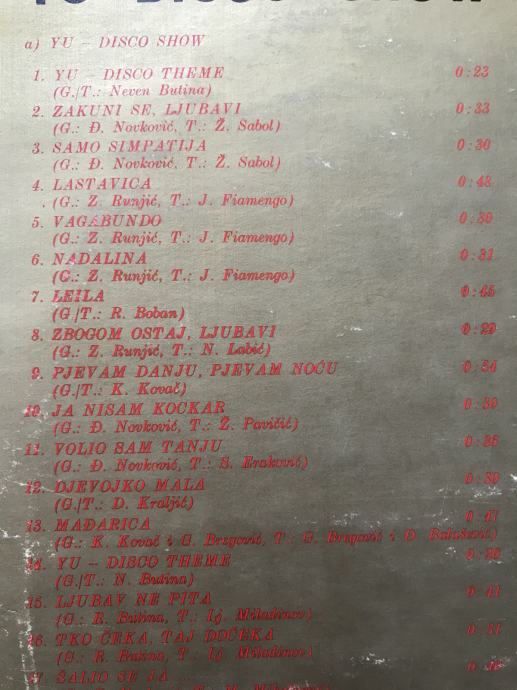 YU DISCO SHOW
a) YU – DISCO SHOW
1. YU – DISCO THEME 0:23
(G./T.: Neven Butina)
2. ZAKUNI SE, LJUBAVI 0:33
(G.: Đ. Novković, T.: Ž. Sabol)
3. SAMO SIMPATIJA 0:30
(G.: Đ. Novković, T.: Ž. Sabol)
4. LASTAVICA 0:48
(G.: Z. Runjić, T.: J. Fiamengo)
5. VAGABUNDO 0:30
(G.: Z. Runjić, T.: J. Fiamengo)
6. NADALINA 0:31
(G.: Z. Runjić, T.: J. Fiamengo)
7. LEILA 0:45
(G/T.: R. Boban)
8. ZBOGOM OSTAJ, LJUBAVI 0:29
(G.: Z. Runjić, T.: N. Labić)
9. PJEVAM DANJU, PJEVAM NOĆU 0:54
(G./T.: K. Kovač)
10. JA NISAM KOCKAR 0:39
(G.: Đ. Novković, T.: Ž. Pavičić)
11. VOLIO SAM TANJU
(G.: Đ. Novković, T.: S. Eraković)
12. DJEVOJKO MALA
(G./T.: D. Kraljić)
13. MAĐARICA 0:47
(G.: K. Kovač i G. Bregović, T.: G. Bregović i Đ. Balašević)
14. YU – DISCO THEME
(G./T.: N. Butina)
15. LJUBAV NE PITA 0:41
(G.: R. Butina, T.: Lj. Miladinov)
16. TKO ČEKA, TAJ DOČEKA
(G.: R. Butina, T.: Lj. Miladinov)
17. ŠALIO SE JA